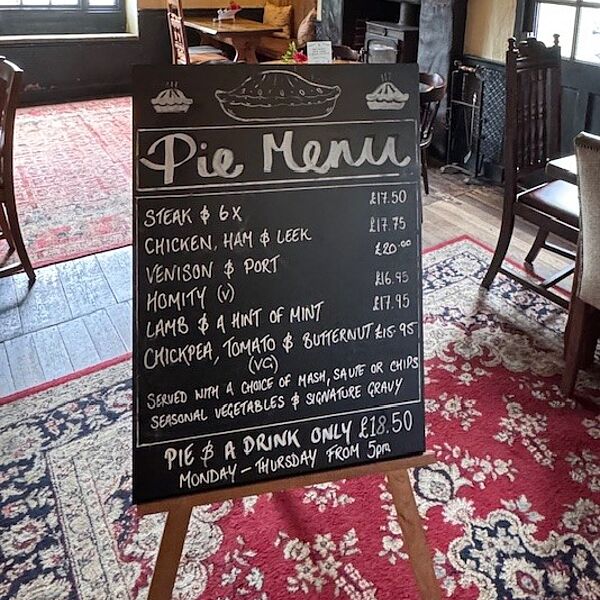 Pie Menu
STEAK & 6X £17.50
CHICKEN, HAM & LEEK £17.75
VENISON & PORT £20.00
HOMITY (V) £16.95
LAMB & A HINT OF MINT £17.95
CHICKPEA, TOMATO & BUTTERNUT £15.95
(VG)
SERVED WITH A CHOICE OF MASH, SAUTE OR CHIPS
SEASONAL VEGETABLES & SIGNATURE GRAVY
PIE & A DRINK ONLY £18.50
MONDAY - THURSDAY FROM 5pm